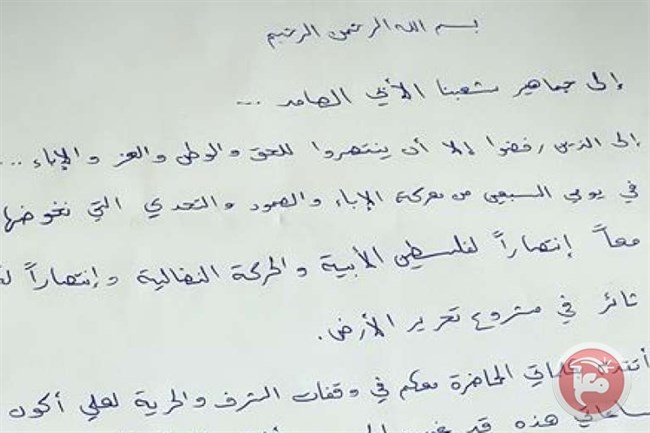 بسم الله الرحمن الرحيم
إلى جماهير شعبنا الأبي الصامد ...
إلى الذين رفضوا إلا أن ينتصروا للحق والوطن والعز والإباء ...
في يومي السبعين من معركة الإباء والصمود والتحدي التي نخوضها
معاً إنتصاراً لفلسطين الأبية والحركة النضالية وإنتصاراً
ثائر في مشروع تحرير الأرض.
كلماتي الحاضرة معكم في وقفات الشرف والحرية لعلي أكون
هذه قد
معا